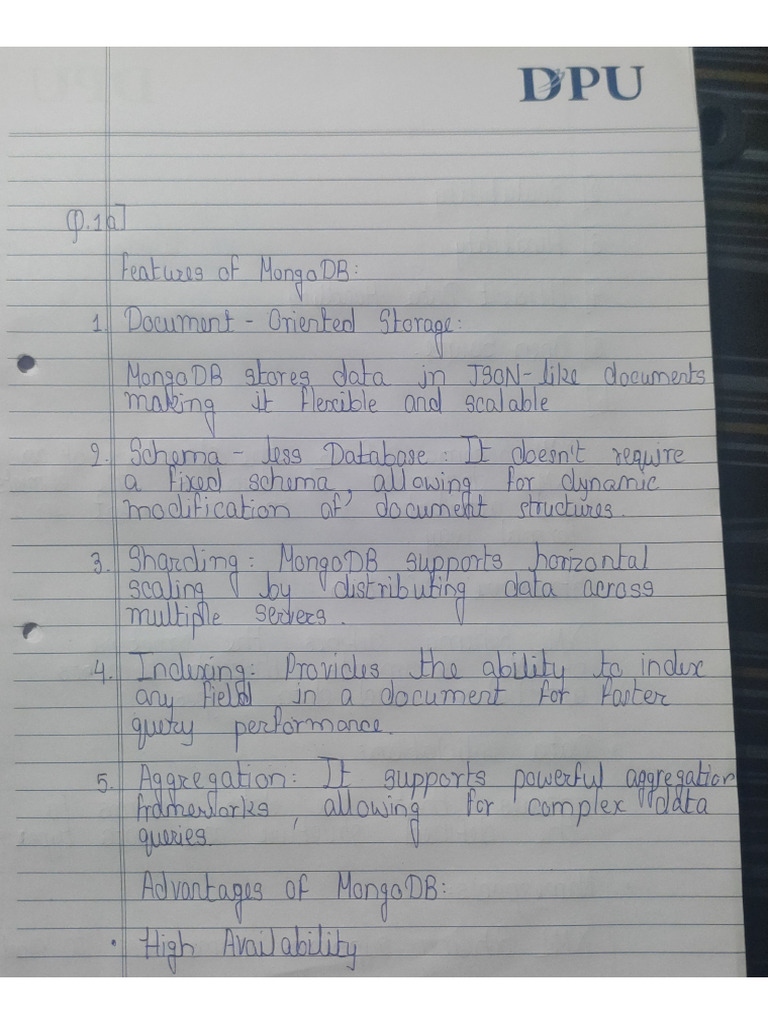 DPU
Q.1a]
Features of MongoDB:
1. Document - Oriented Storage:
MongoDB stores data in JSON-like documents
making it flexible and scalable
2. Schema - less Database : It doesn't require
a fixed schema, allowing for dynamic
modification of document structures.
3. Sharding : MongoDB supports horizontal
scaling by distributing data across
multiple servers.
4. Indexing: Provides the ability to index
any field in a document for faster
query performance.
5. Aggregation: It supports powerful aggregation
frameworks, allowing for complex data
queries.
Advantages of MongoDB:
• High Availability